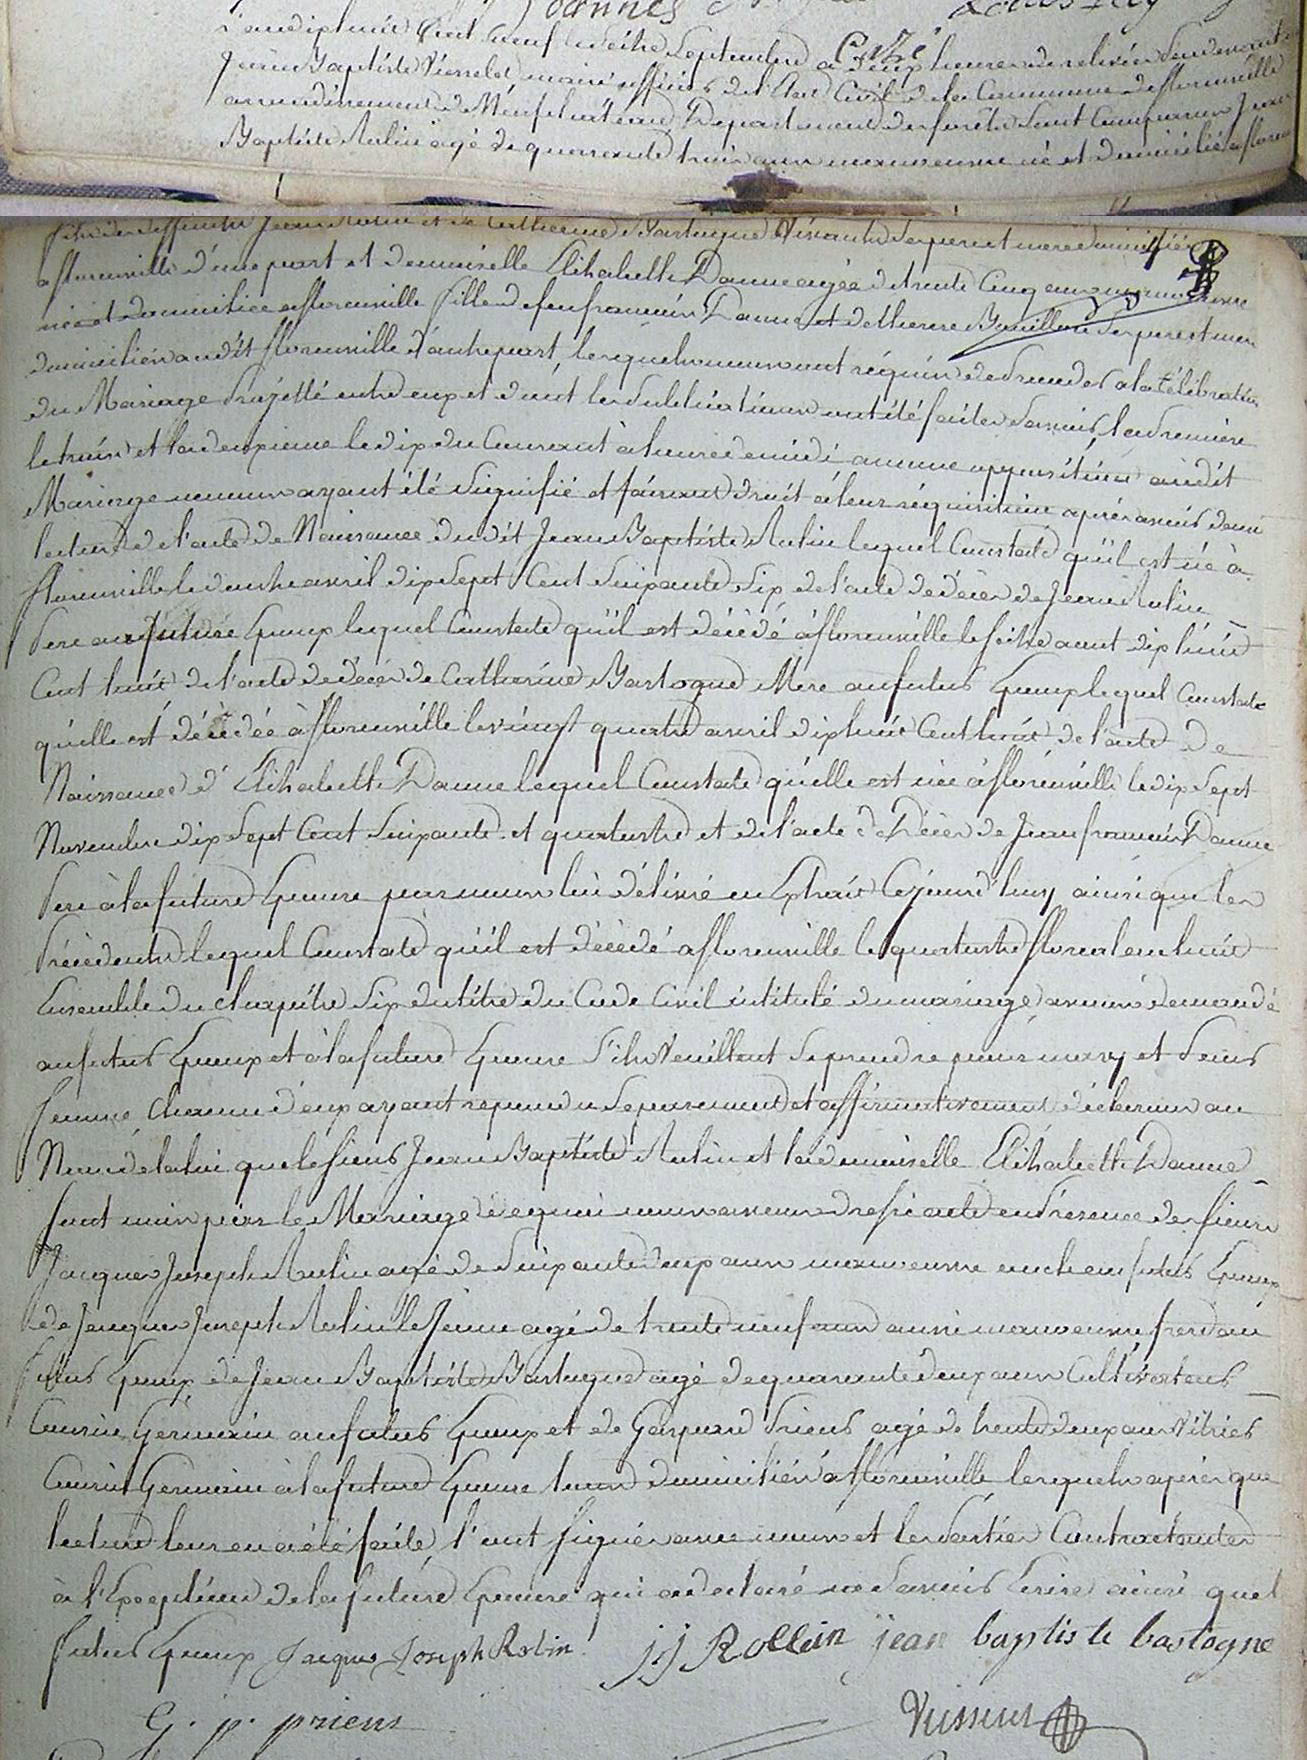 Joannes
L'an dix huit Cent neuf le seize Septembre a deux heures de relevée Pardevant
Jean Baptiste maire officier de l'Etat Civil de la Commune de florenville
arrondissement de Neufchateau Departement des forêts Sont Comparus Jean
Baptiste Rolin agé de quarante trois ans manoeuvre né et domicilié a floren
fils des deffunts Jean Rolin et de Catherine Bastogne Vivants Ses pere et mere domiciliés
a florenville d'une part et demoiselle Elisabeth Danne agée de trente Cinq ans
née et domiciliée a florenville fille de feu francois Danne et de therese Ses pere et mere
domiciliés audit florenville d'autre part, lesquels nous ont réquis de Proceder a la Célébration
du Mariage Projetté entre eux et dont les Publications ont été faites Savoir, la Premiere
le trois et la deuxieme le dix du Courant à heure de midi aucune opposition audit
Mariage ne nous ayant été Signifié et faisant droit à leur réquisition après avoir donné
lecture de l'acte de Naissance dudit Jean Baptiste Rolin lequel Constate qu'il est né à
florenville le avril dix Sept Cent Soixante Six de l'acte de décès de Jean Rolin
Pere au futur Epoux lequel Constate qu'il est décédé à florenville le seize aout dix huit
Cent huit de l'acte de décès de Catherine Bastogne Mere au futur Epoux lequel Constate
qu'elle est décédée à florenville le vingt quatre avril dix huit Cent huit de l'acte de
Naissance d'Elisabeth Danne lequel Constate qu'elle est née à florenville le dix Sept
Novembre dix Sept Cent Soixante et quatorze et de l'acte de Décès de Jean francois Danne
Pere à la future Epouse par nous lui délivré en Extrait Cejourd'huy ainsi que les
Précédents lequel Constate qu'il est décédé a florenville le quatorze floreal an huit
Ensemble du chapitre Six du titre du Code Civil intitulé du mariage avons demandé
au futur Epoux et à la future Epouse S'ils Veuillent Se prendre pour mary et Pour
femme, Chacun d'eux ayant repondu Separement et affirmativement déclarons au
Nom de la loi que le sieur Jean Baptiste Rolin et la demoiselle Elisabeth Danne
Sont unis par le Mariage de quoi nous avons dressé acte en Présence des sieurs
Jacques Joseph Rolin agé de Soixante deux ans manoeuvre oncle au futur Epoux
de Jacques Joseph Rolin le Jeune agé de trente neuf ans aussi manoeuvre frere au
futur Epoux de Jean Baptiste Bastogne agé de quarante deux ans Cultivateur
Cousin Germain au futur Epoux et de Gaspard Priens agé de trente deux ans Vitrier
Cousin Germain à la future Epouse tous domiciliés à florenville lesquels après que
lecture leur en a été faite l'ont signé avec nous et les Parties Contractantes
à l'Exception de la future Epouse qui a declaré ne Savoir Ecrire ainsi que l
futur Epoux Jacques Joseph Rolin JJ Rollein jean baptiste bastogne
G. p. priens